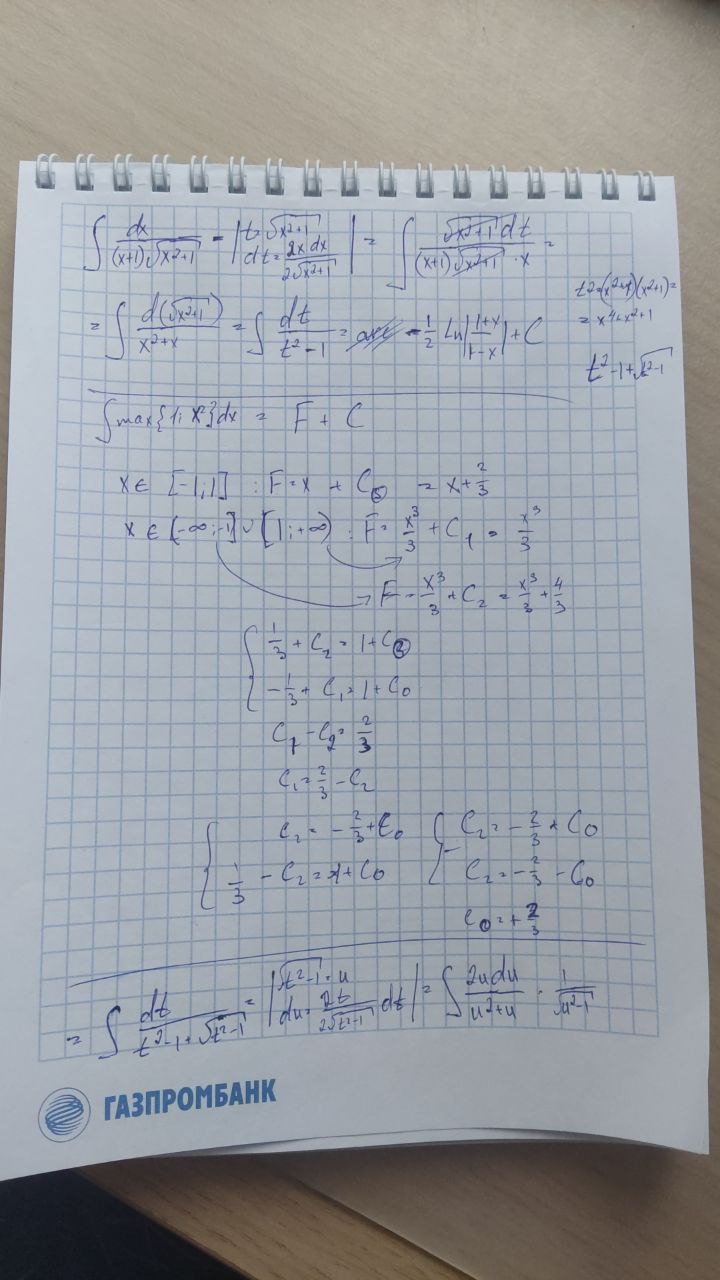 ∫ dx/((x+1)√(x²+1)) = | t=√(x²+1) dt = 2x dx/(2√(x²+1)) | = ∫ √(x²+1) dt/((x+1)√(x²+1) · x) =
= ∫ d(√(x²+1))/(x²+x) = ∫ dt/(t²-1) = -1/2 ln|(1+x)/(1-x)| + C
= x⁴+x²+1
t²-1+√(t²-1)
∫ max{1; x²}dx = F + C
x ∈ [-1;1] : F = x + C₀ = x + 2/3
x ∈ (-∞;-1] ∪ [1;+∞) : F = x³/3 + C₁ = x³/3
F = x³/3 + C₂ = x³/3 + 4/3
{ 1/3 + C₂ = 1 + C
-1/3 + C₁ = 1 + C₀
C₁ - C₂ = 2/3
C₁ = 2/3 - C₂
{ C₂ = -2/3 + C₀ { C₂ = -2/3 + C₀
1/3 - C₂ = 1 + C₀ C₂ = -2/3 - C₀
C₀ = + 2/3
= ∫ dt/(t²-1+√(t²-1)) = | √(t²-1) = u du = 2t/(2√(t²-1)) dt | = ∫ 2u du/(u²+u) · 1/√(u²-1)
ГАЗПРОМБАНК